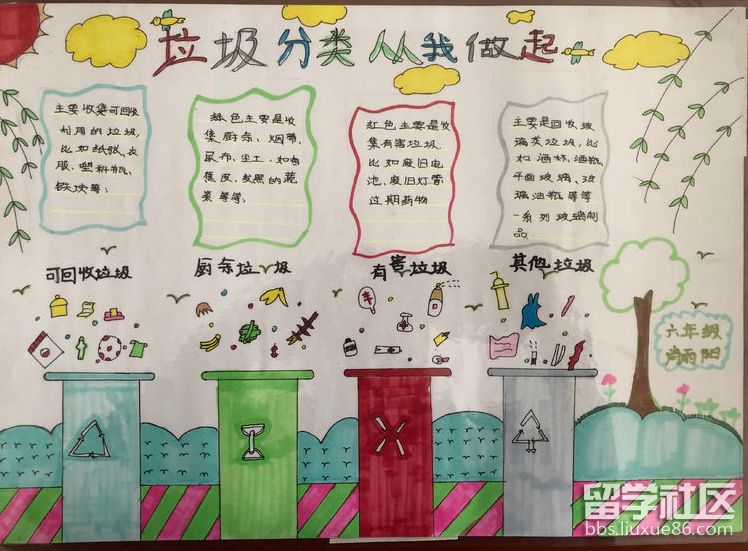 垃圾分类从我做起
主要收集可回收
利用的垃圾,
比如纸张、衣
服、塑料瓶、
铁块等;
绿色主要是收
集厨余、烟蒂、
尿布、尘土,如香
蕉皮、发黑的蔬
菜等等;
红色主要是收
集有害垃圾,
比如废旧电
池、废旧灯管
过期药物
主要是回收玻
璃类垃圾,比
如酒杯、酒瓶、
平面玻璃、玻
璃油瓶等等
一系列玻璃制
品
可回收垃圾
厨余垃圾
有害垃圾
其他垃圾
六年级
雨阳
留学社区
bbs.liuxue86.com